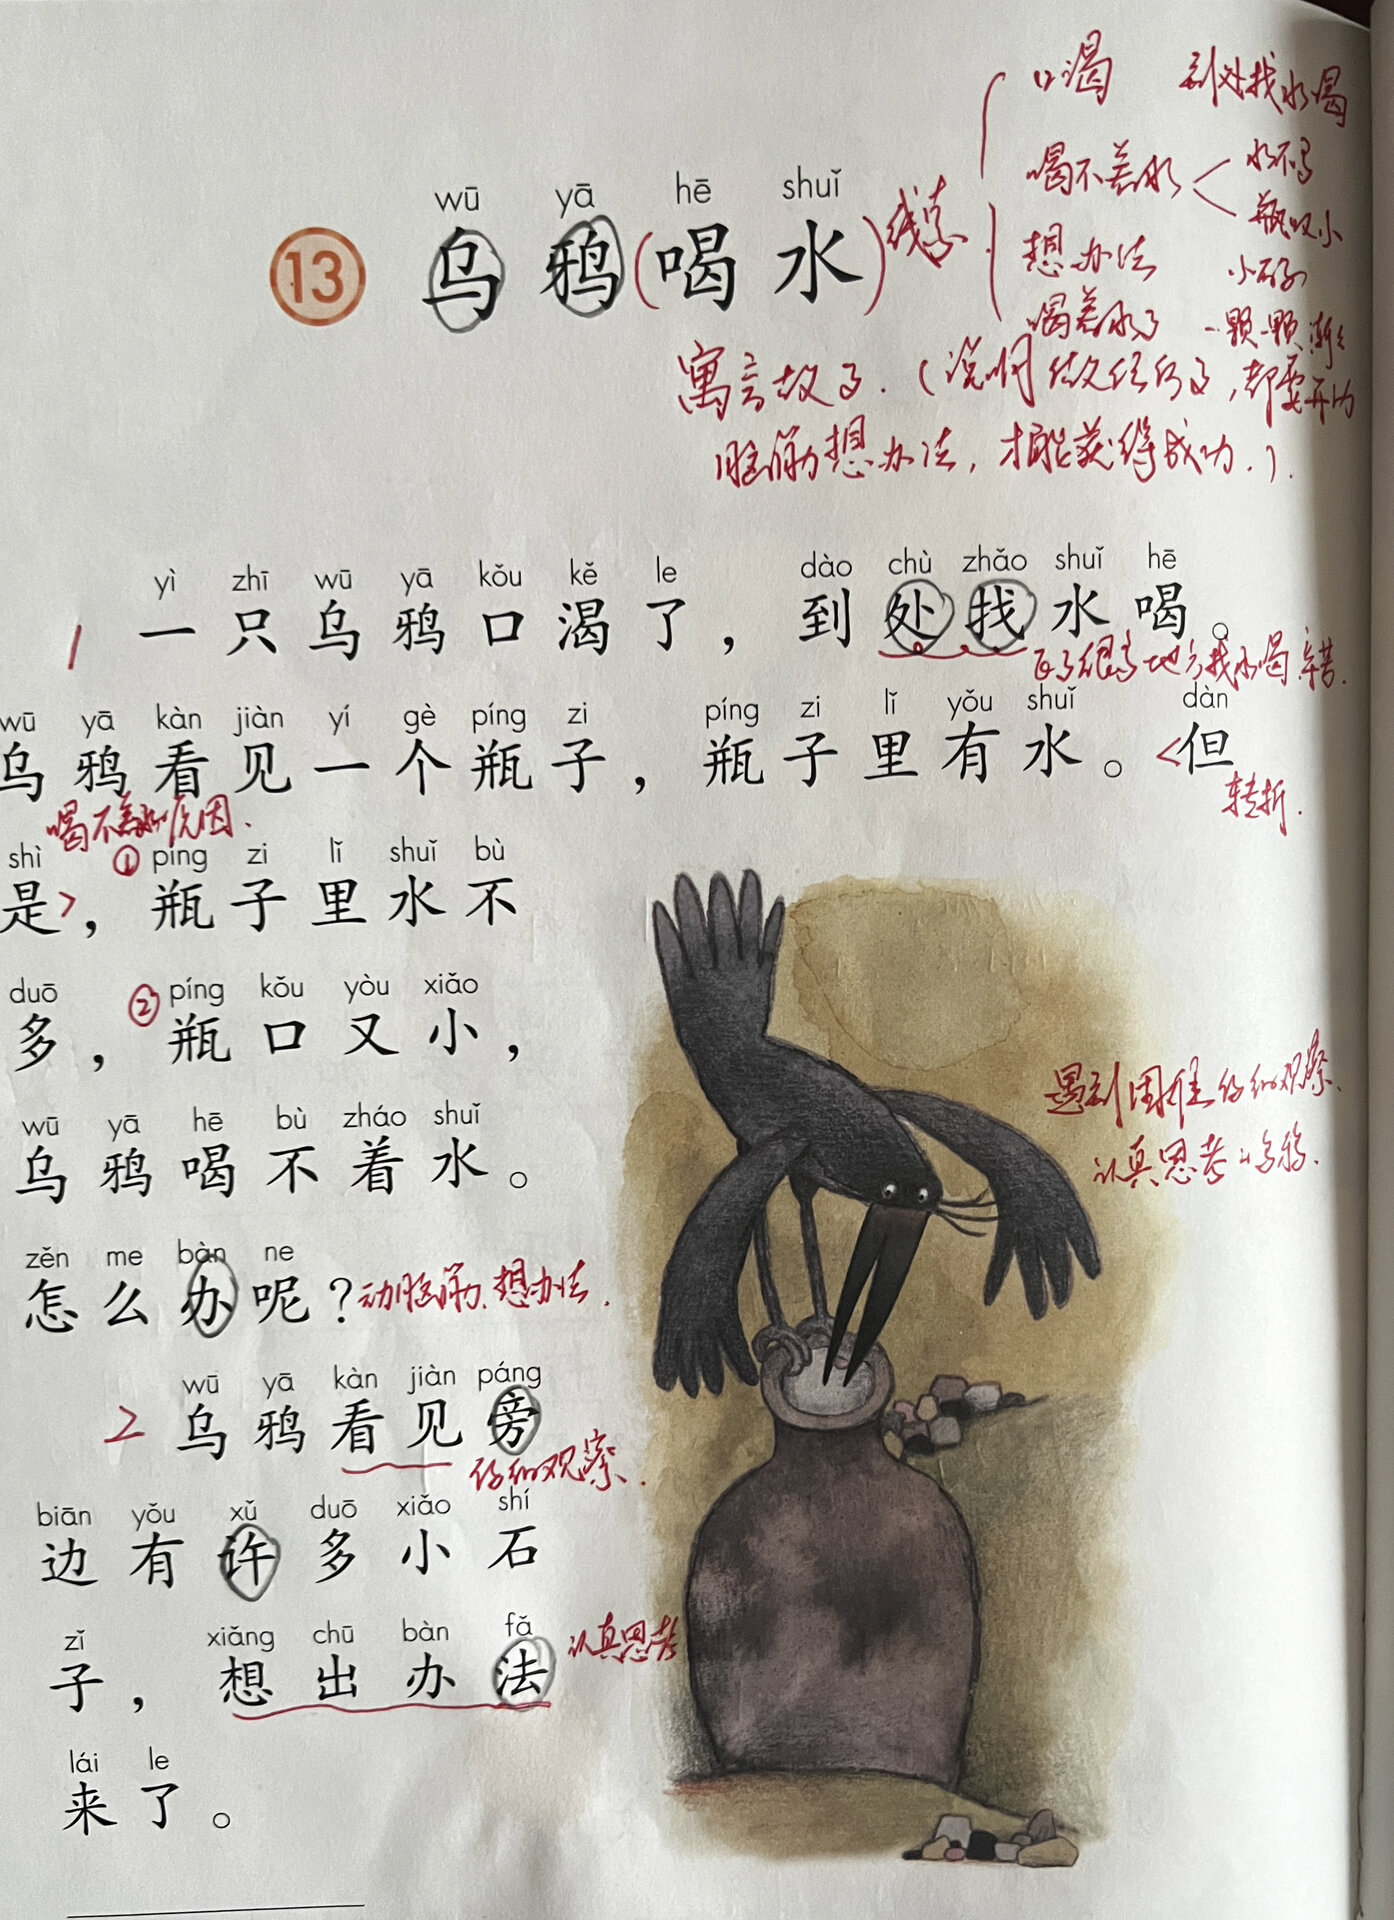 口渴 到处找水喝
喝不着水 水不多
瓶口小
想办法 小石子
喝着水了 一颗一颗 渐渐
wū yā hē shuǐ
13 乌鸦(喝水)线索
寓言故事.(说明做任何事,都要开动
脑筋想办法,才能获得成功.).
yì zhī wū yā kǒu kě le dào chù zhǎo shuǐ hē
1 一只乌鸦口渴了，到处找水喝。
去了很多地方找水喝.辛苦.
wū yā kàn jiàn yí gè píng zi píng zi lǐ yǒu shuǐ dàn
乌鸦看见一个瓶子，瓶子里有水。<但
转折.
喝不着水原因.
shì píng zi lǐ shuǐ bù
是>，①瓶子里水不
duō píng kǒu yòu xiǎo
多，②瓶口又小，
wū yā hē bù zháo shuǐ
乌鸦喝不着水。
遇到困难仔细观察.
认真思考的乌鸦.
zěn me bàn ne
怎么办呢？动脑筋、想办法.
wū yā kàn jiàn páng
2 乌鸦看见旁
仔细观察.
biān yǒu xǔ duō xiǎo shí
边有许多小石
zǐ xiǎng chū bàn fǎ
子，想出办法 认真思考
lái le
来了。